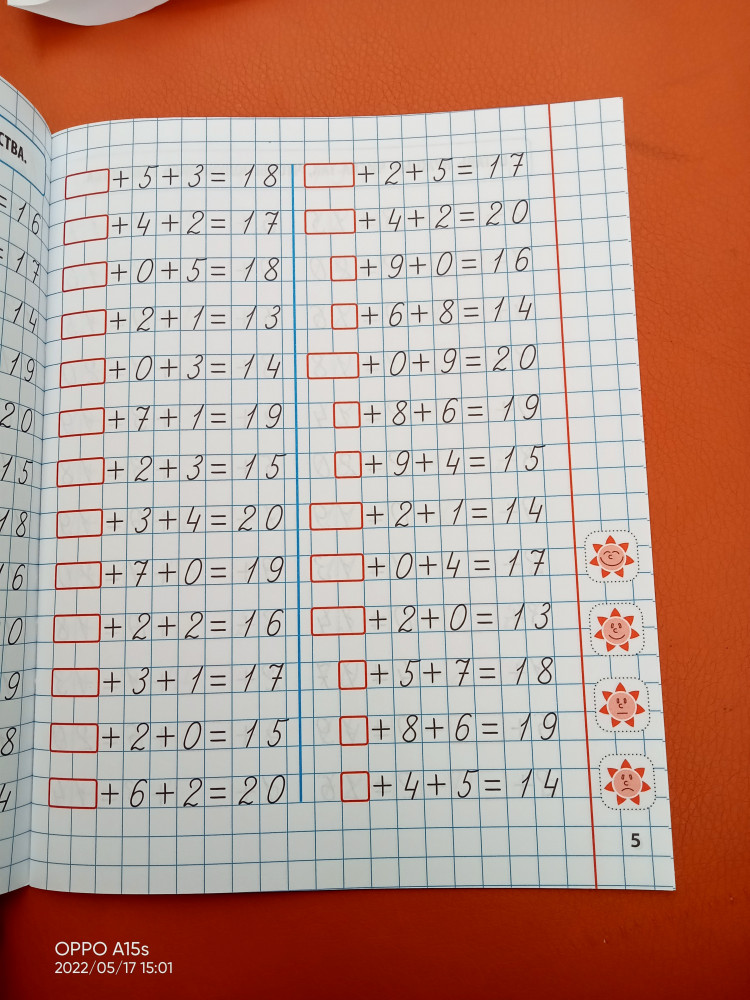 СТВА.
= 16
= 17
14
19
20
15
18
16
0
9
8
4
+ 5 + 3 = 18
+ 4 + 2 = 17
+ 0 + 5 = 18
+ 2 + 1 = 13
+ 0 + 3 = 14
+ 7 + 1 = 19
+ 2 + 3 = 15
+ 3 + 4 = 20
+ 7 + 0 = 19
+ 2 + 2 = 16
+ 3 + 1 = 17
+ 2 + 0 = 15
+ 6 + 2 = 20
+ 2 + 5 = 17
+ 4 + 2 = 20
+ 9 + 0 = 16
+ 6 + 8 = 14
+ 0 + 9 = 20
+ 8 + 6 = 19
+ 9 + 4 = 15
+ 2 + 1 = 14
+ 0 + 4 = 17
+ 2 + 0 = 13
+ 5 + 7 = 18
+ 8 + 6 = 19
+ 4 + 5 = 14
5
OPPO A15s
2022/05/17 15:01